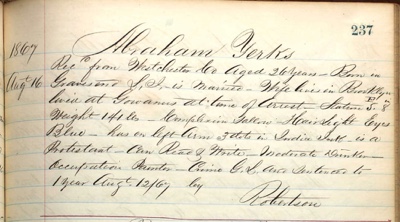 237
1867 Abraham Yerks
Augt 16 Recd from Westchester Co Aged 26 years - Born in
Gravesend L,I, - is Married - Wife lives in Brooklyn
lived at Gowanus at time of Arrest - Stature 5. 8
Weight 141 lbs - Complexion Sallow - Hair Light Eyes
Blue - has on left Arm 3 dots in India Ink - is a
Protestant - Can Read & Write - Moderate Drinker -
Occupation Painter - Crime G.L. and Sentenced to
1 year Augt 12/67 by
Robertson